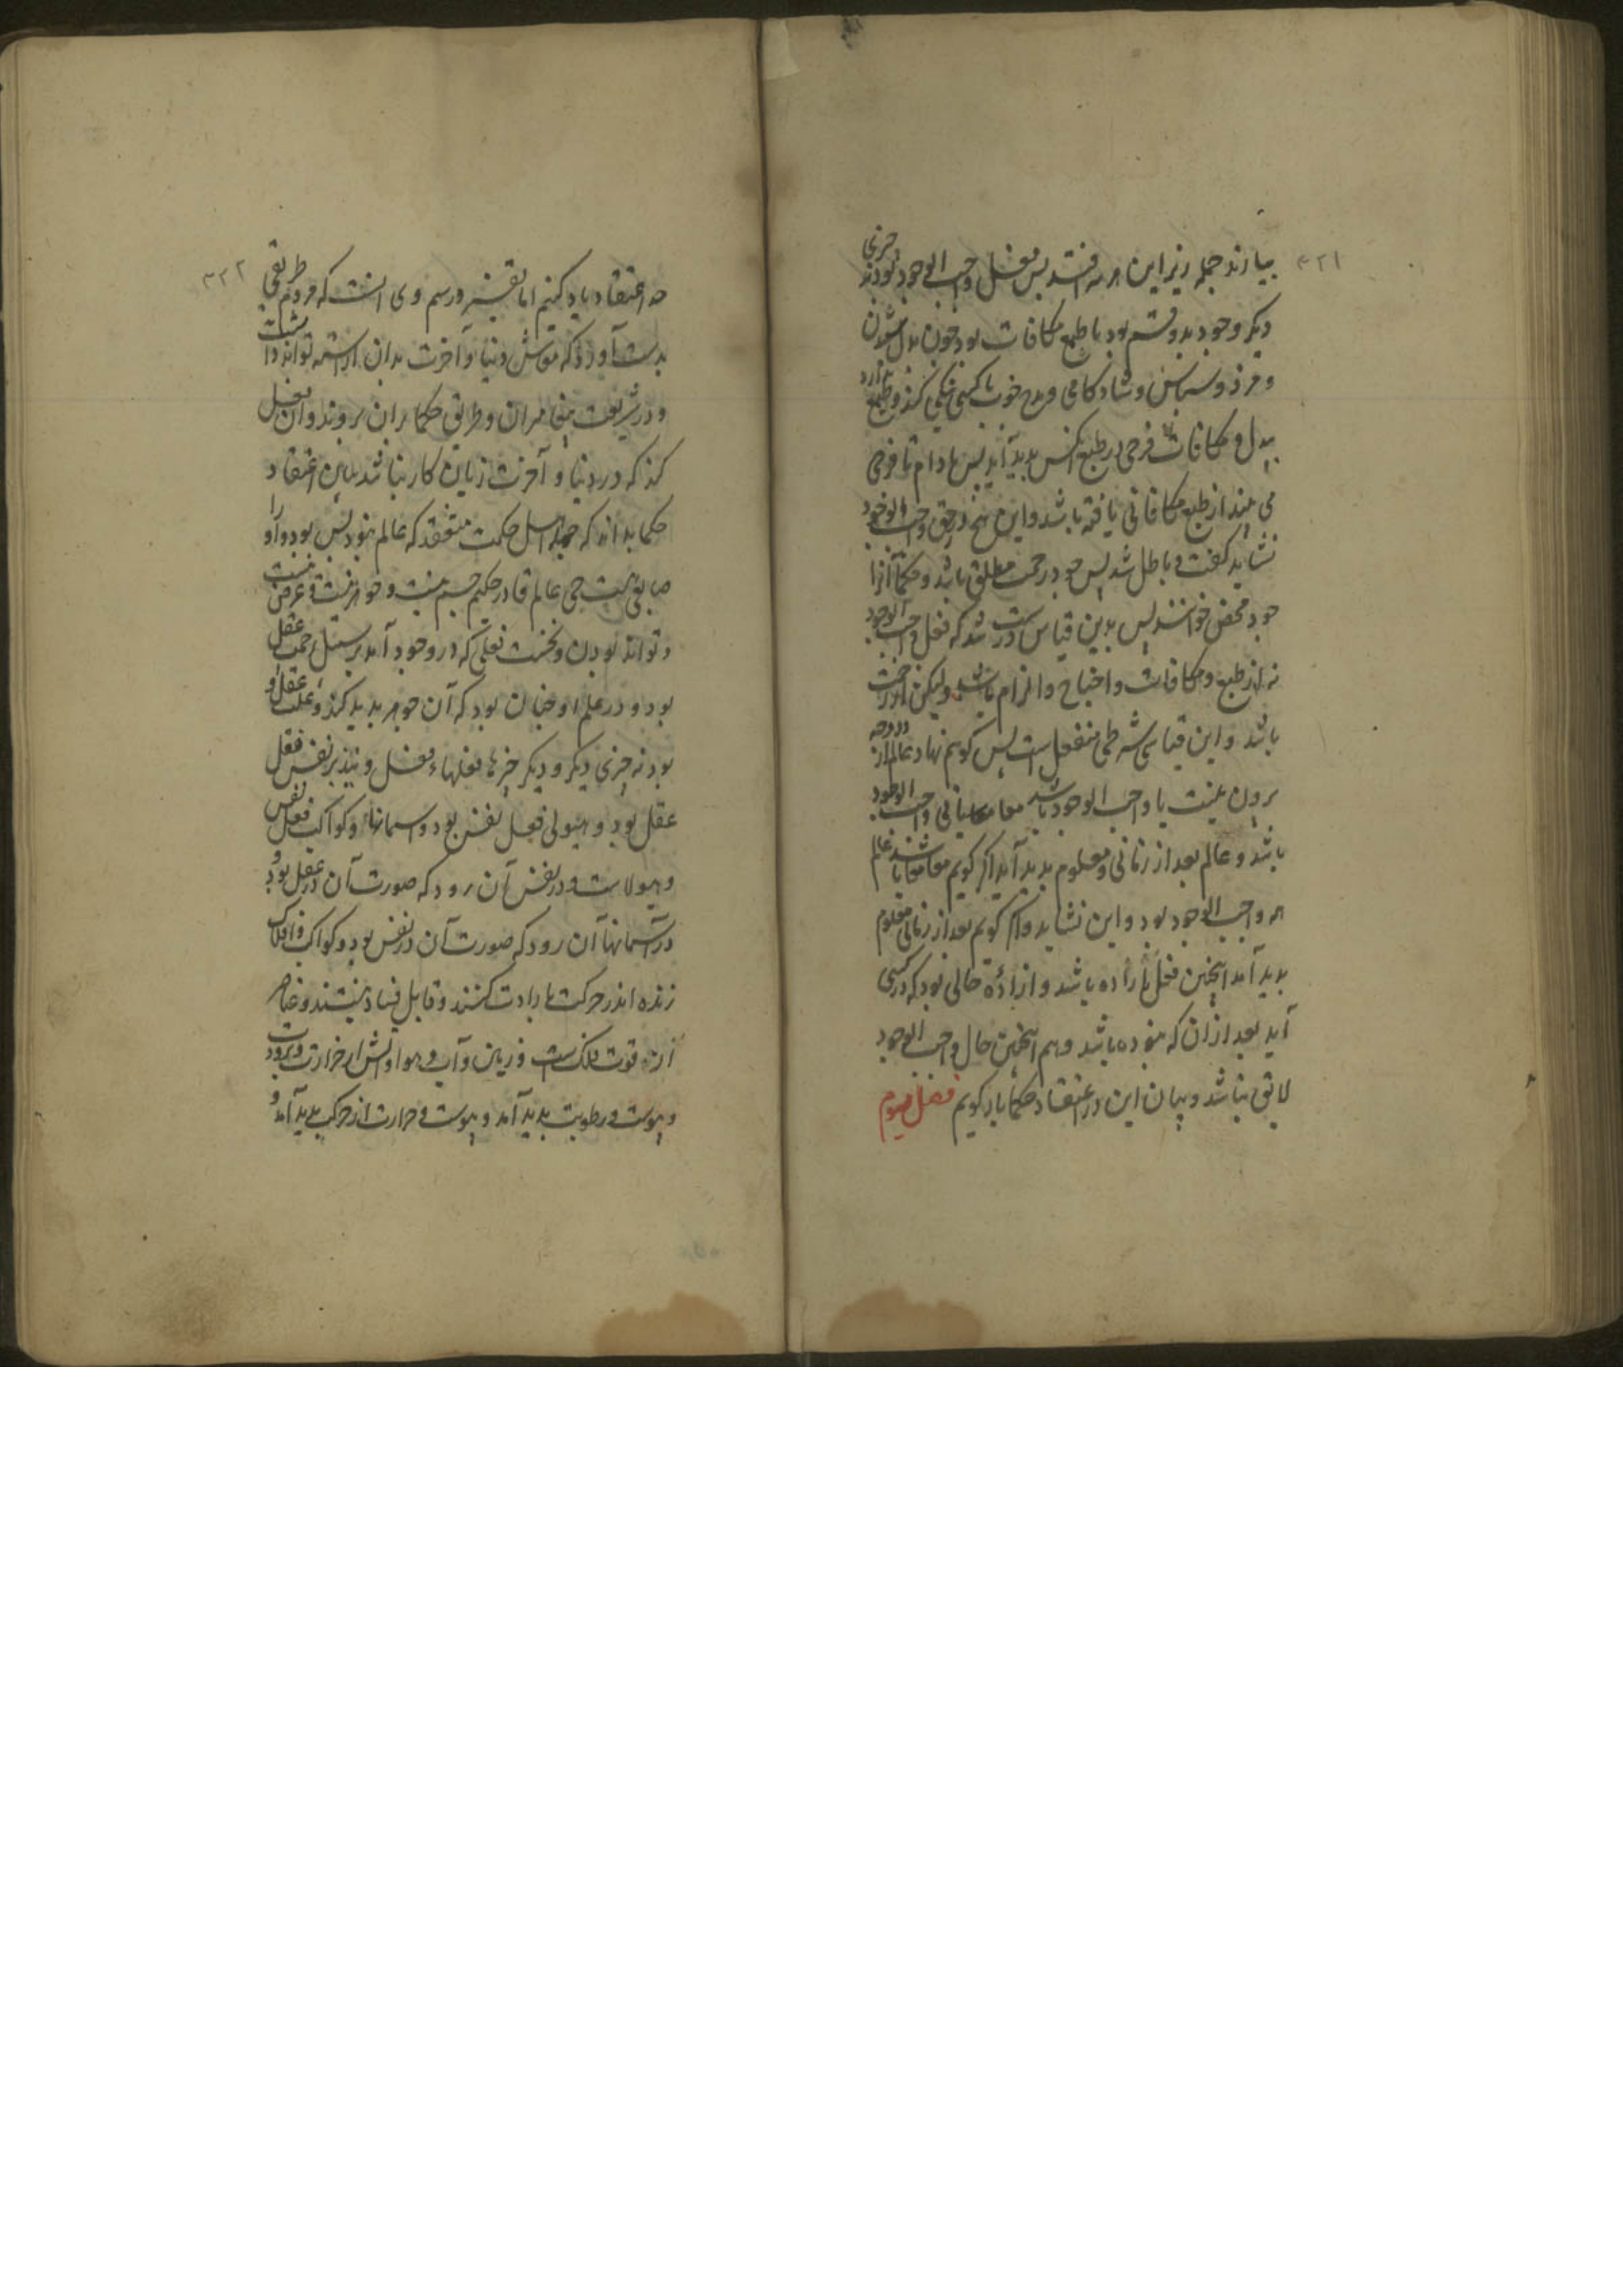 ۳۲۱
بیارند جمله زیر این هر سه افتد پس فعل واجب الوجود بود نه چیزی
دیگر وجود بدو قسم بود با طمع مکافات بود چون
و مزد و سپاس و شادکامی و مدح خوب با کسی نیکی کند و طمع دارد
بدل و مکافات فرحی در طبع انکس بدید آید پس مادام تا فرحی
می بیند از طمع مکافاتی یافته باشد و این هم در حق واجب الوجود
نشاید گفت و باطل شد پس جود رحمت مطلق باشد و حکما آنرا
جود محض خوانند پس بدین قیاس درست شد که فعل واجب الوجود
نه از طبع و مکافات و احتیاج و الزام باشد ولیکن از رحمت
باشد و این قیاسی شرطی منفصل است پس گویم نهاد عالم از دو وجه
برون نیست یا واجب الوجود باشد معا معا یا نی واجب الوجود
باشد و عالم بعد از زمانی معلوم بدید آید اگر گویم معا معا باشند عالم
هم واجب الوجود بود و این نشاید و اگر گویم بعد از زمانی معلوم
بدید آمد اینچنین فعل باراده باشد و اراده حالی بود که در کسی
آید بعد از ان که نبوده باشد و هم اینچنین حال واجب الوجود
لایق نباشد و بیان این در اعتقاد حکما یاد گویم فصل سوم
۳۲۲
در اعتقاد یاد کنیم اما تفسیر و رسم وی آنست که مردم طریقی
بدست آورد که معاش دنیا و آخرت بدان آراسته تواند داشت
و در شریعت پیغامبران و طریق حکما بران بروند و آن فعل
کند که در دنیا و آخرت زیان کار نباشد بیان اعتقاد
حکما بدانکه جمله اهل حکمت متفقند که عالم نبود پس بود و او را
صانعی است حی عالم قادر حکیم جسم نیست و جوهر نیست و عرض نیست
و تواند بودن و نخست فعلی که در وجود آمد بر سبیل رحمت عقل
بود و در علم او چنان بود که آن جوهر بدید کند و علت عقل او
بود نه چیزی دیگر و دیگر چیزها فعلهاء فعل ویند بر نفس فعل
عقل بود و هیولی فعل نفس بود و آسمانها و کواکب فعل نفس
و هیولاست و در نفس آن رود که صورت آن در عقل بود و
در آسمانها آن رود که صورت آن در نفس بود و کواکب و افلاک
زنده اند و حرکت بارادت کنند و قابل فساد نیستند و عناصر
از قوت فلک است و زمین و آب و هوا و آتش از حرارت و برودت
و یبوست و رطوبت بدید آمد و یبوست و حرارت از حرکت بدید آمد و